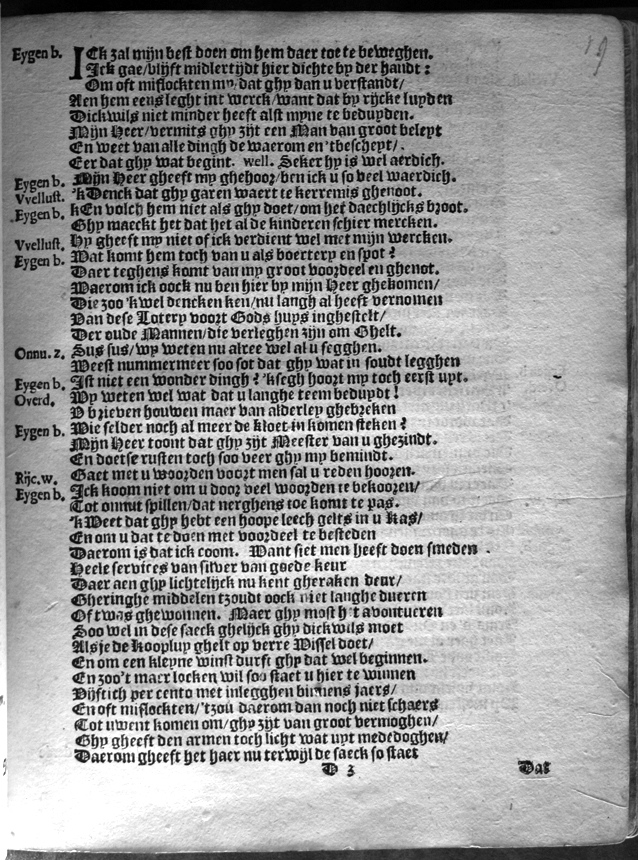 19
Eygen b. ICk zal mijn best doen om hem daer toe te beweghen.
Ick gae/blijft midlertijdt hier dichte by der handt:
Om oft misflockten my/dat ghy dan u verstandt/
Aen hem eens leght int werck/want dat by rijcke luyden
Dickwils niet minder heeft alst myne te beduyden.
Mijn Heer/vermits ghy zijt een Man van groot beleyt
En weet van alle dingh de waerom en 'tbescheyt/.
Eer dat ghy wat begint. well. Seker hy is wel aerdich.
Eygen b. Mijn Heer gheeft my ghehoor/ben ick u so veel waerdich.
Vvellust. 'k Denck dat ghy garen waert te kerremis ghenoot.
Eygen b. kEn volch hem niet als ghy doet/om het daechlijcks broot.
Ghy maeckt het dat het al de kinderen schier mercken.
Vvellust. Hy gheeft my niet of ick verdient wel met mijn wercken.
Eygen b. Wat komt hem toch van u als boertery en spot?
Daer teghens komt van my groot voordeel en ghenot.
Waerom ick oock nu ben hier by mijn Heer ghekomen/
Die zoo 'k wel dencken ken/nu langh al heeft vernomen
Van dese Lotery voort Gods huys inghestelt/
Der oude Mannen/die verleghen zijn om Ghelt.
Onnu. z. Sus sus/wy weten nu alree wel al u segghen.
Meest nummermeer soo sot dat ghy wat in soudt legghen
Eygen b. Ist niet een wonder dingh? 'ksegh hoort my toch eerst uyt.
Overd. Wy weten wel wat dat u langhe teem beduydt!
V brieven houwen maer van alderley ghebreken
Eygen b. Wie selder noch al meer de kloet in komen steken?
Mijn Heer toont dat ghy zijt Meester van u ghezindt.
En doetse rusten toch soo veer ghy my bemindt.
Rijc. w. Gaet met u woorden voort men sal u reden hooren.
Eygen b. Ick koom niet om u door veel woorden te bekooren/
Tot onnut spillen/dat nerghens toe komt te pas.
'k Weet dat ghy hebt een hoope leech gelts in u kas/
En om u dat te doen met voordeel te besteden
Daerom is dat ick coom. Want siet men heeft doen smeden
Heele services van silver van goede keur
Daer aen ghy lichtelijck nu kent gheraken deur/
Gheringhe middelen tzoudt oock niet langhe dueren
Of twas ghewonnen. Maer ghy most h't avontueren
Soo wel in dese saeck ghelijck ghy dickwils moet
Als je de Kooplup ghelt op verre Wissel doet/
En om een kleyne winst durft ghy dat wel beginnen.
En zoo't maer locken wil soo staet u hier te winnen
Vijftich per cento met inlegghen binnens jaers/
En oft misflockten/'tzou daerom dan noch niet schaers
Tot uwent komen om/ghy zijt van groot vermoghen/
Ghy gheeft den armen toch licht wat uyt mededoghen/
Daerom gheeft het haer nu terwyl de saeck so staet
D 3 Dat